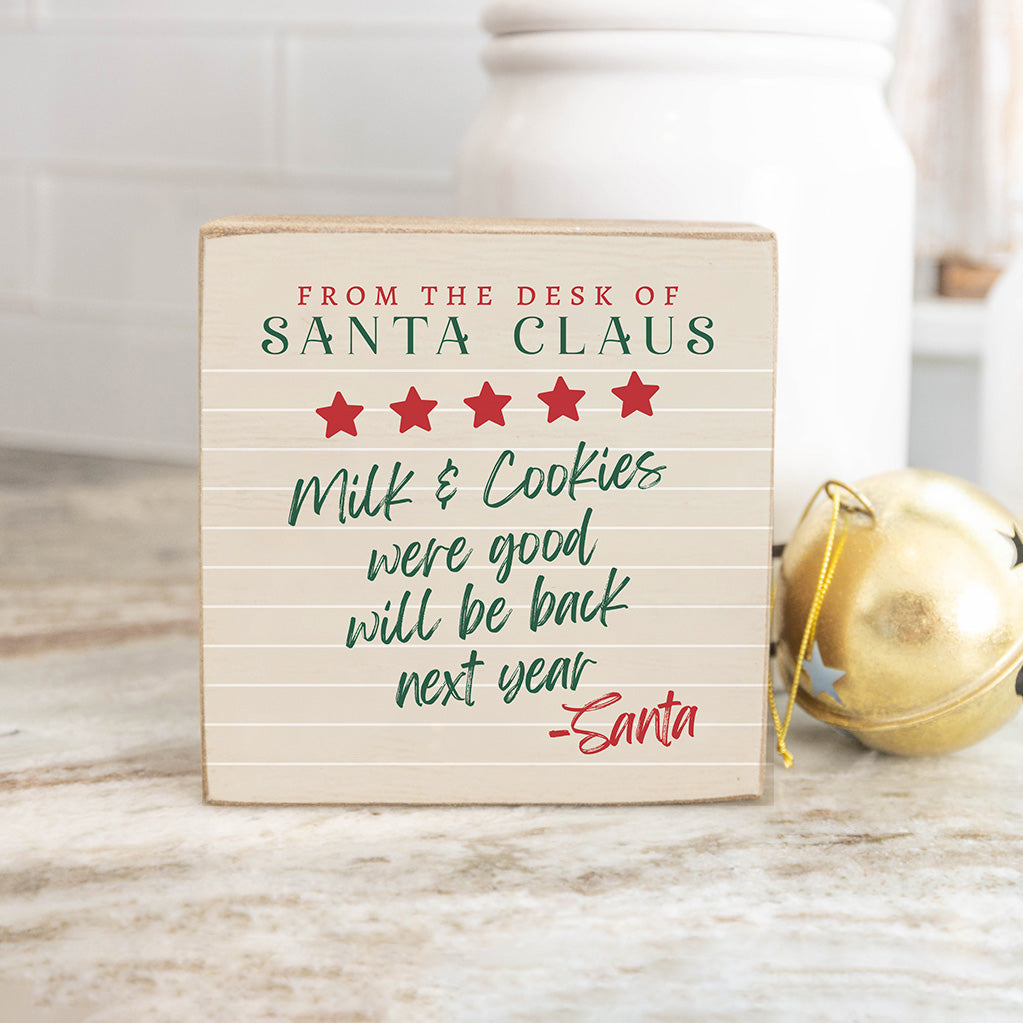 FROM THE DESK OF
SANTA CLAUS
Milk & Cookies
were good
will be back
next year
-Santa